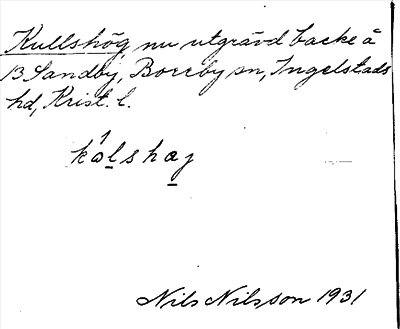 Kullshög nu utgrävd backe å
13 Sandby, Borrby sn, Ingelstads
hd, Krist. l.
kolshøj
Nils Nilsson 1931